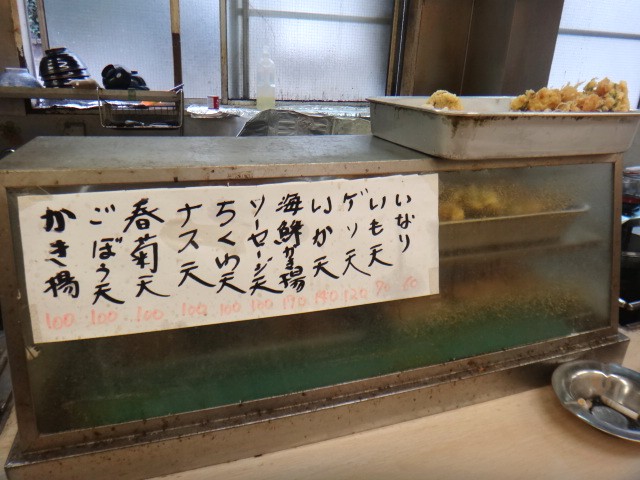 いなり 60
いも天 70
ゲソ天 120
いか天 140
海鮮かき揚 190
ソーセージ天 100
ちくわ天 100
ナス天 100
春菊天 100
ごぼう天 100
かき揚 100